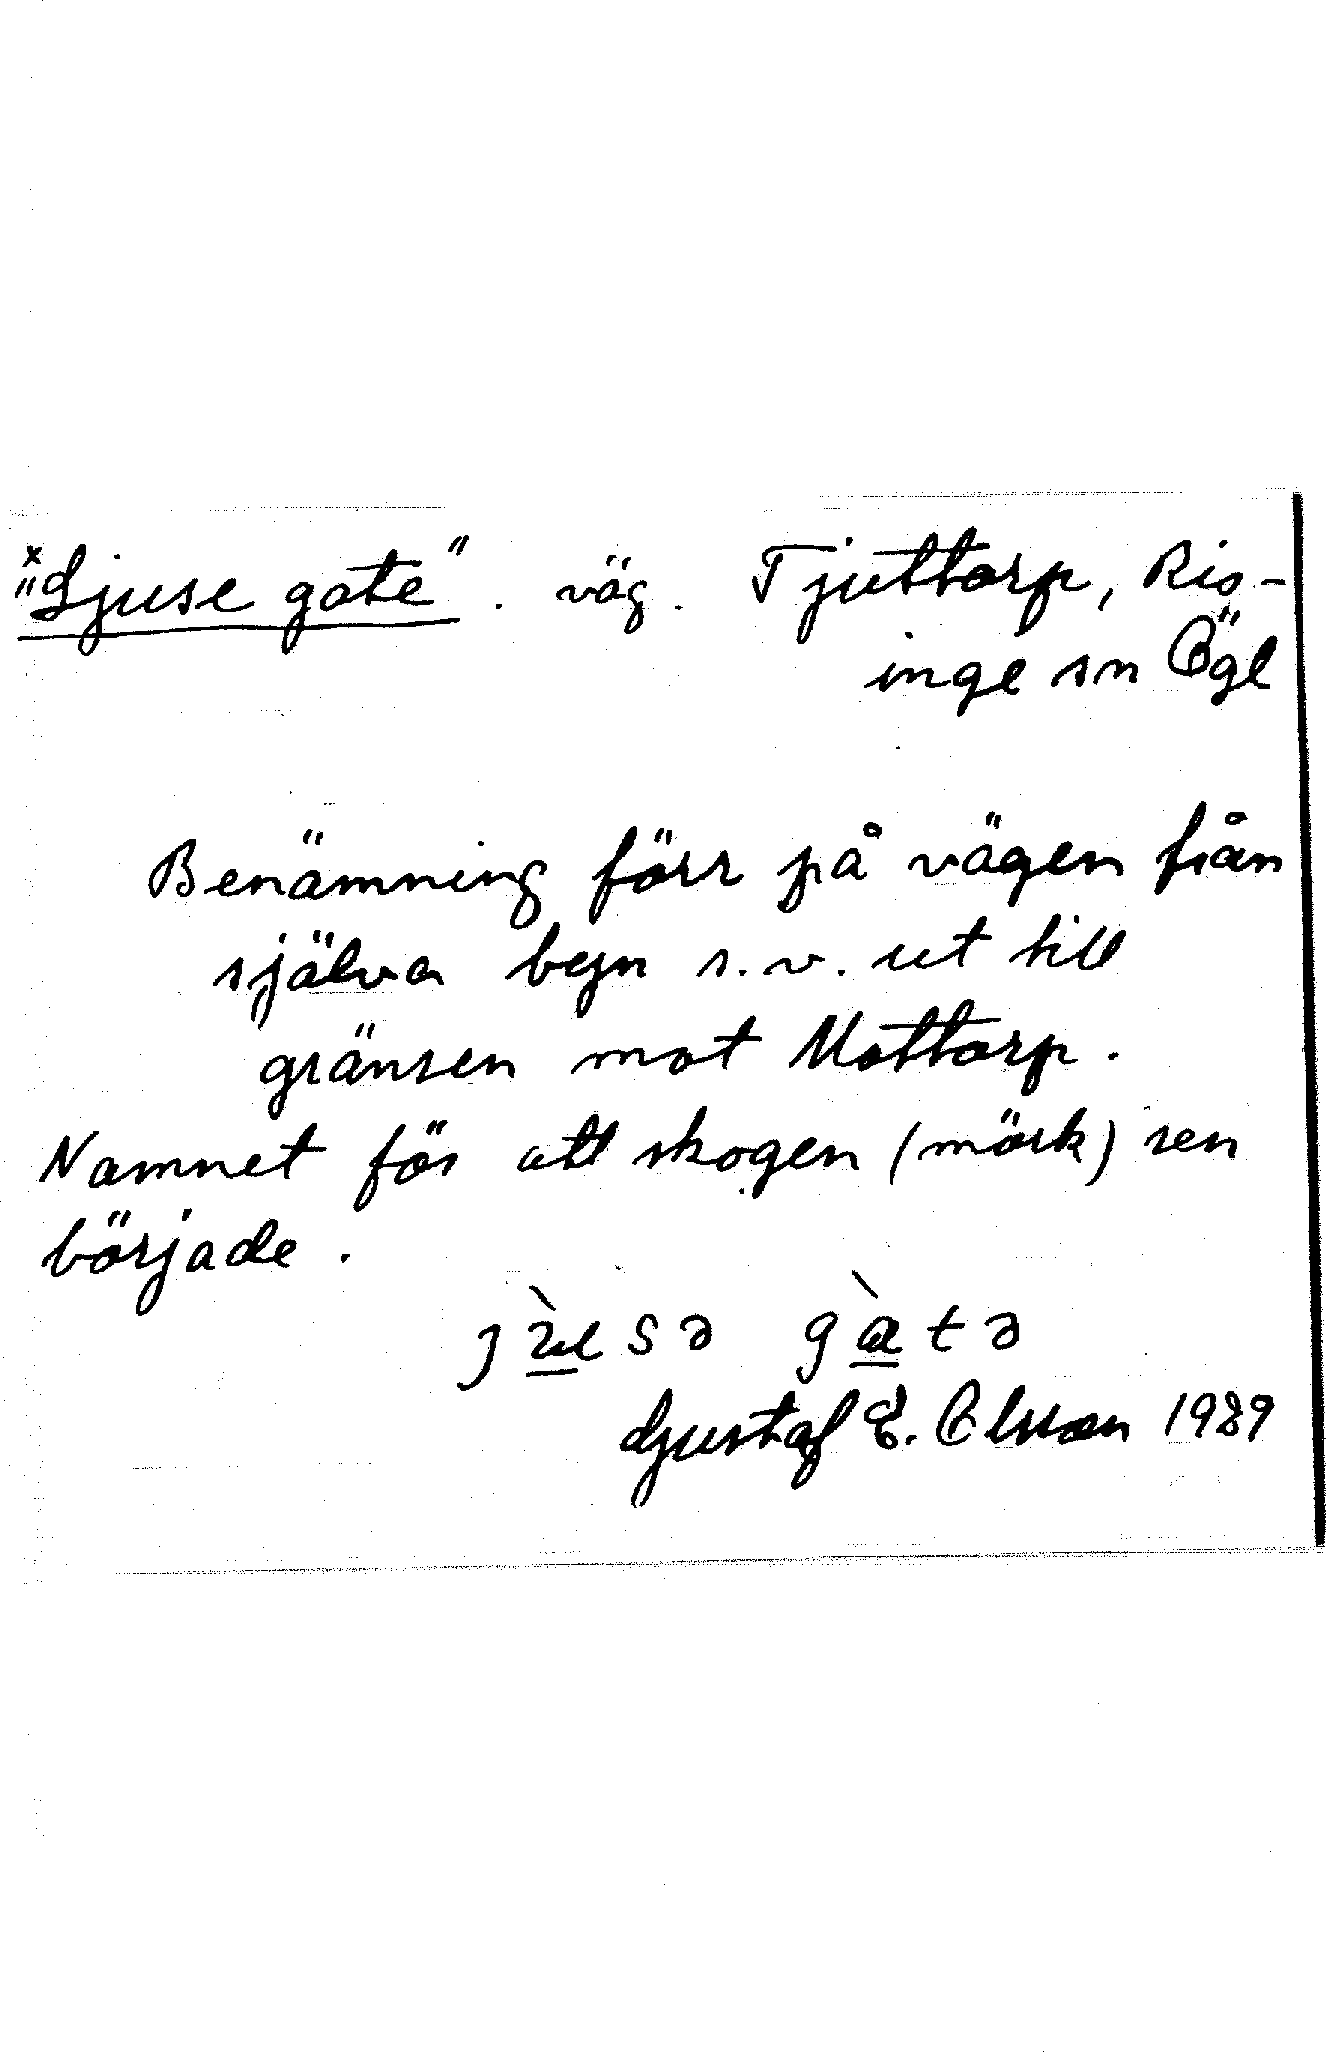 x "Ljuse gate". väg. Tjuttorp, Ris-
inge sn Ögl
Benämning förr på vägen från
själva byn s.v. ut till
gränsen mot Mottorp.
Namnet för att skogen (mörk) sen
började.
gata
Gustaf E. Olsson 1989